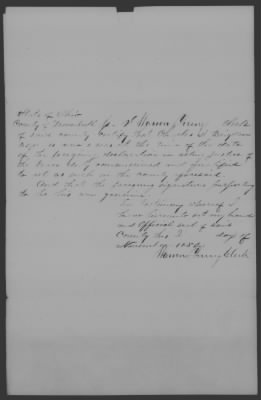 State of Ohio
County of ss I Warren Clerk
of said county certify that Charles
now is and was at the time of the date
of the foregoing declaration an acting Justice of
the Peace duly commissioned and qualified
to act as such in the county aforesaid
And that the foregoing signature purporting
to be his are genuine
In testimony whereof I
have hereunto set my hand
and official seal of said
County this 2 day of
November
Warren Clerk